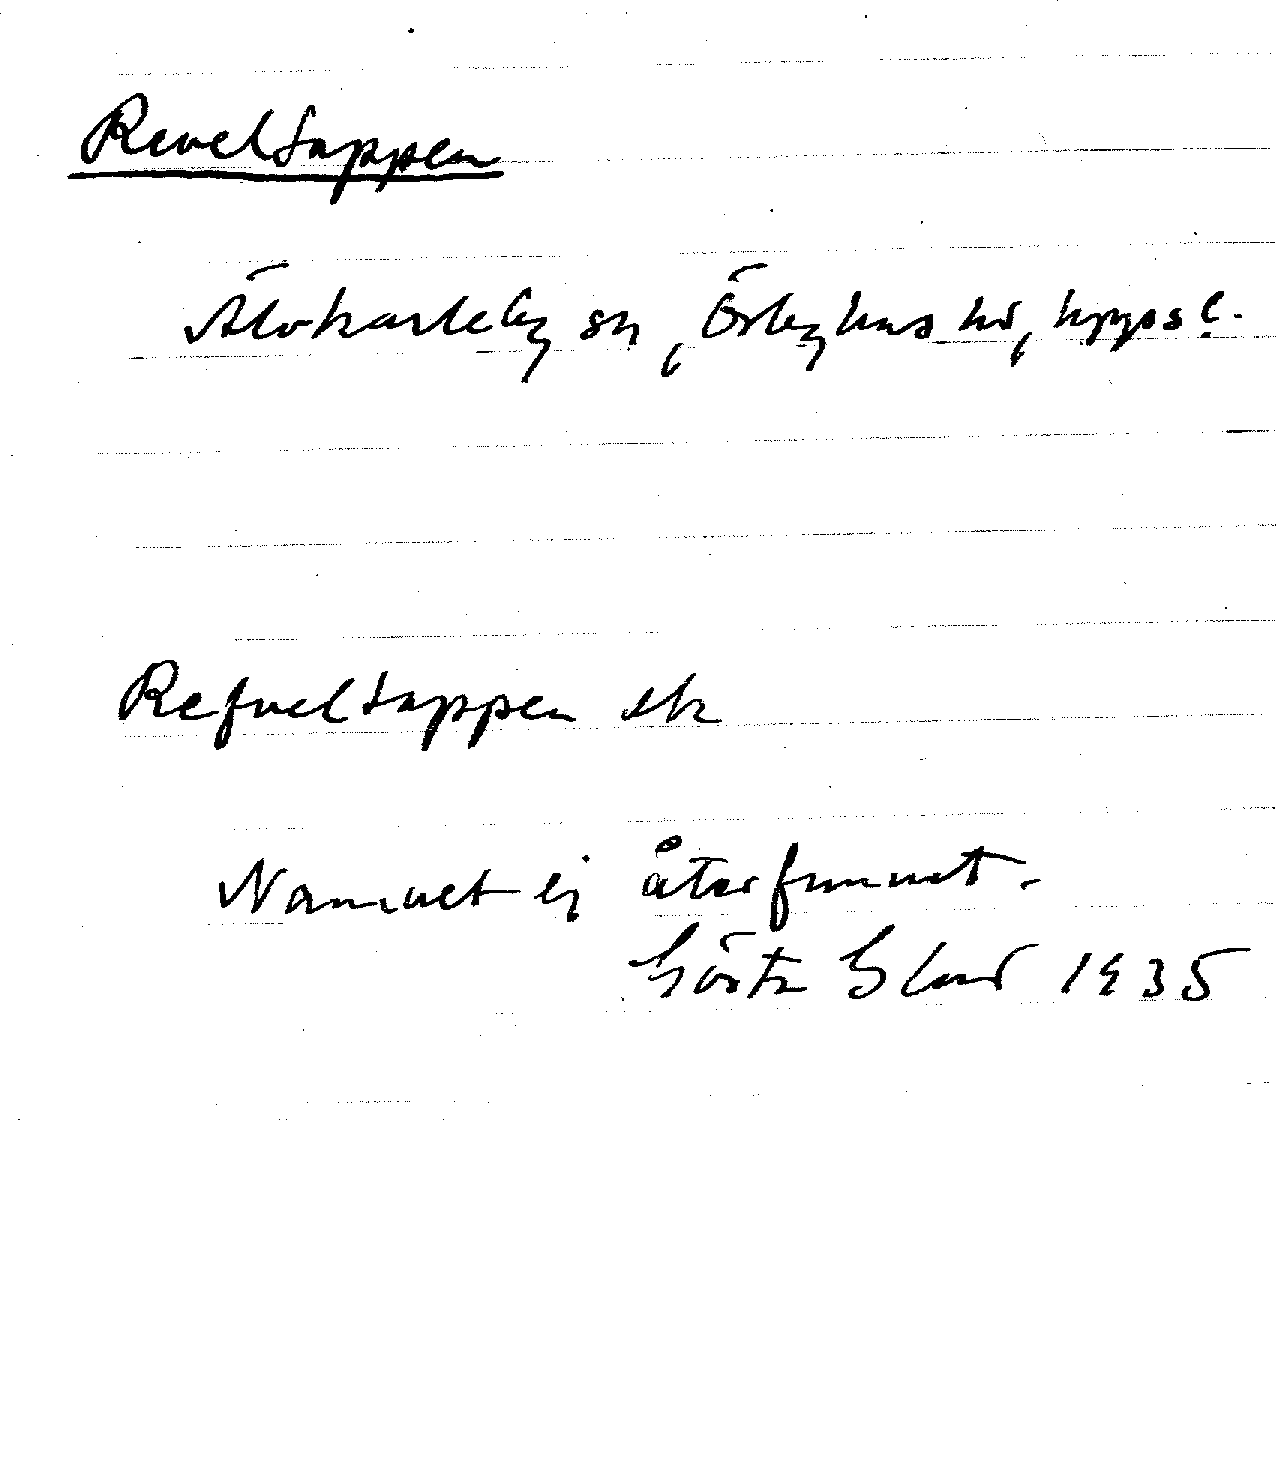 Reveltappen
Älvkarleby sn, Örbyhus hd, Uppsl.
Refveltappen ek
Namnet ej återfunnet.
Gösta Blad 1935